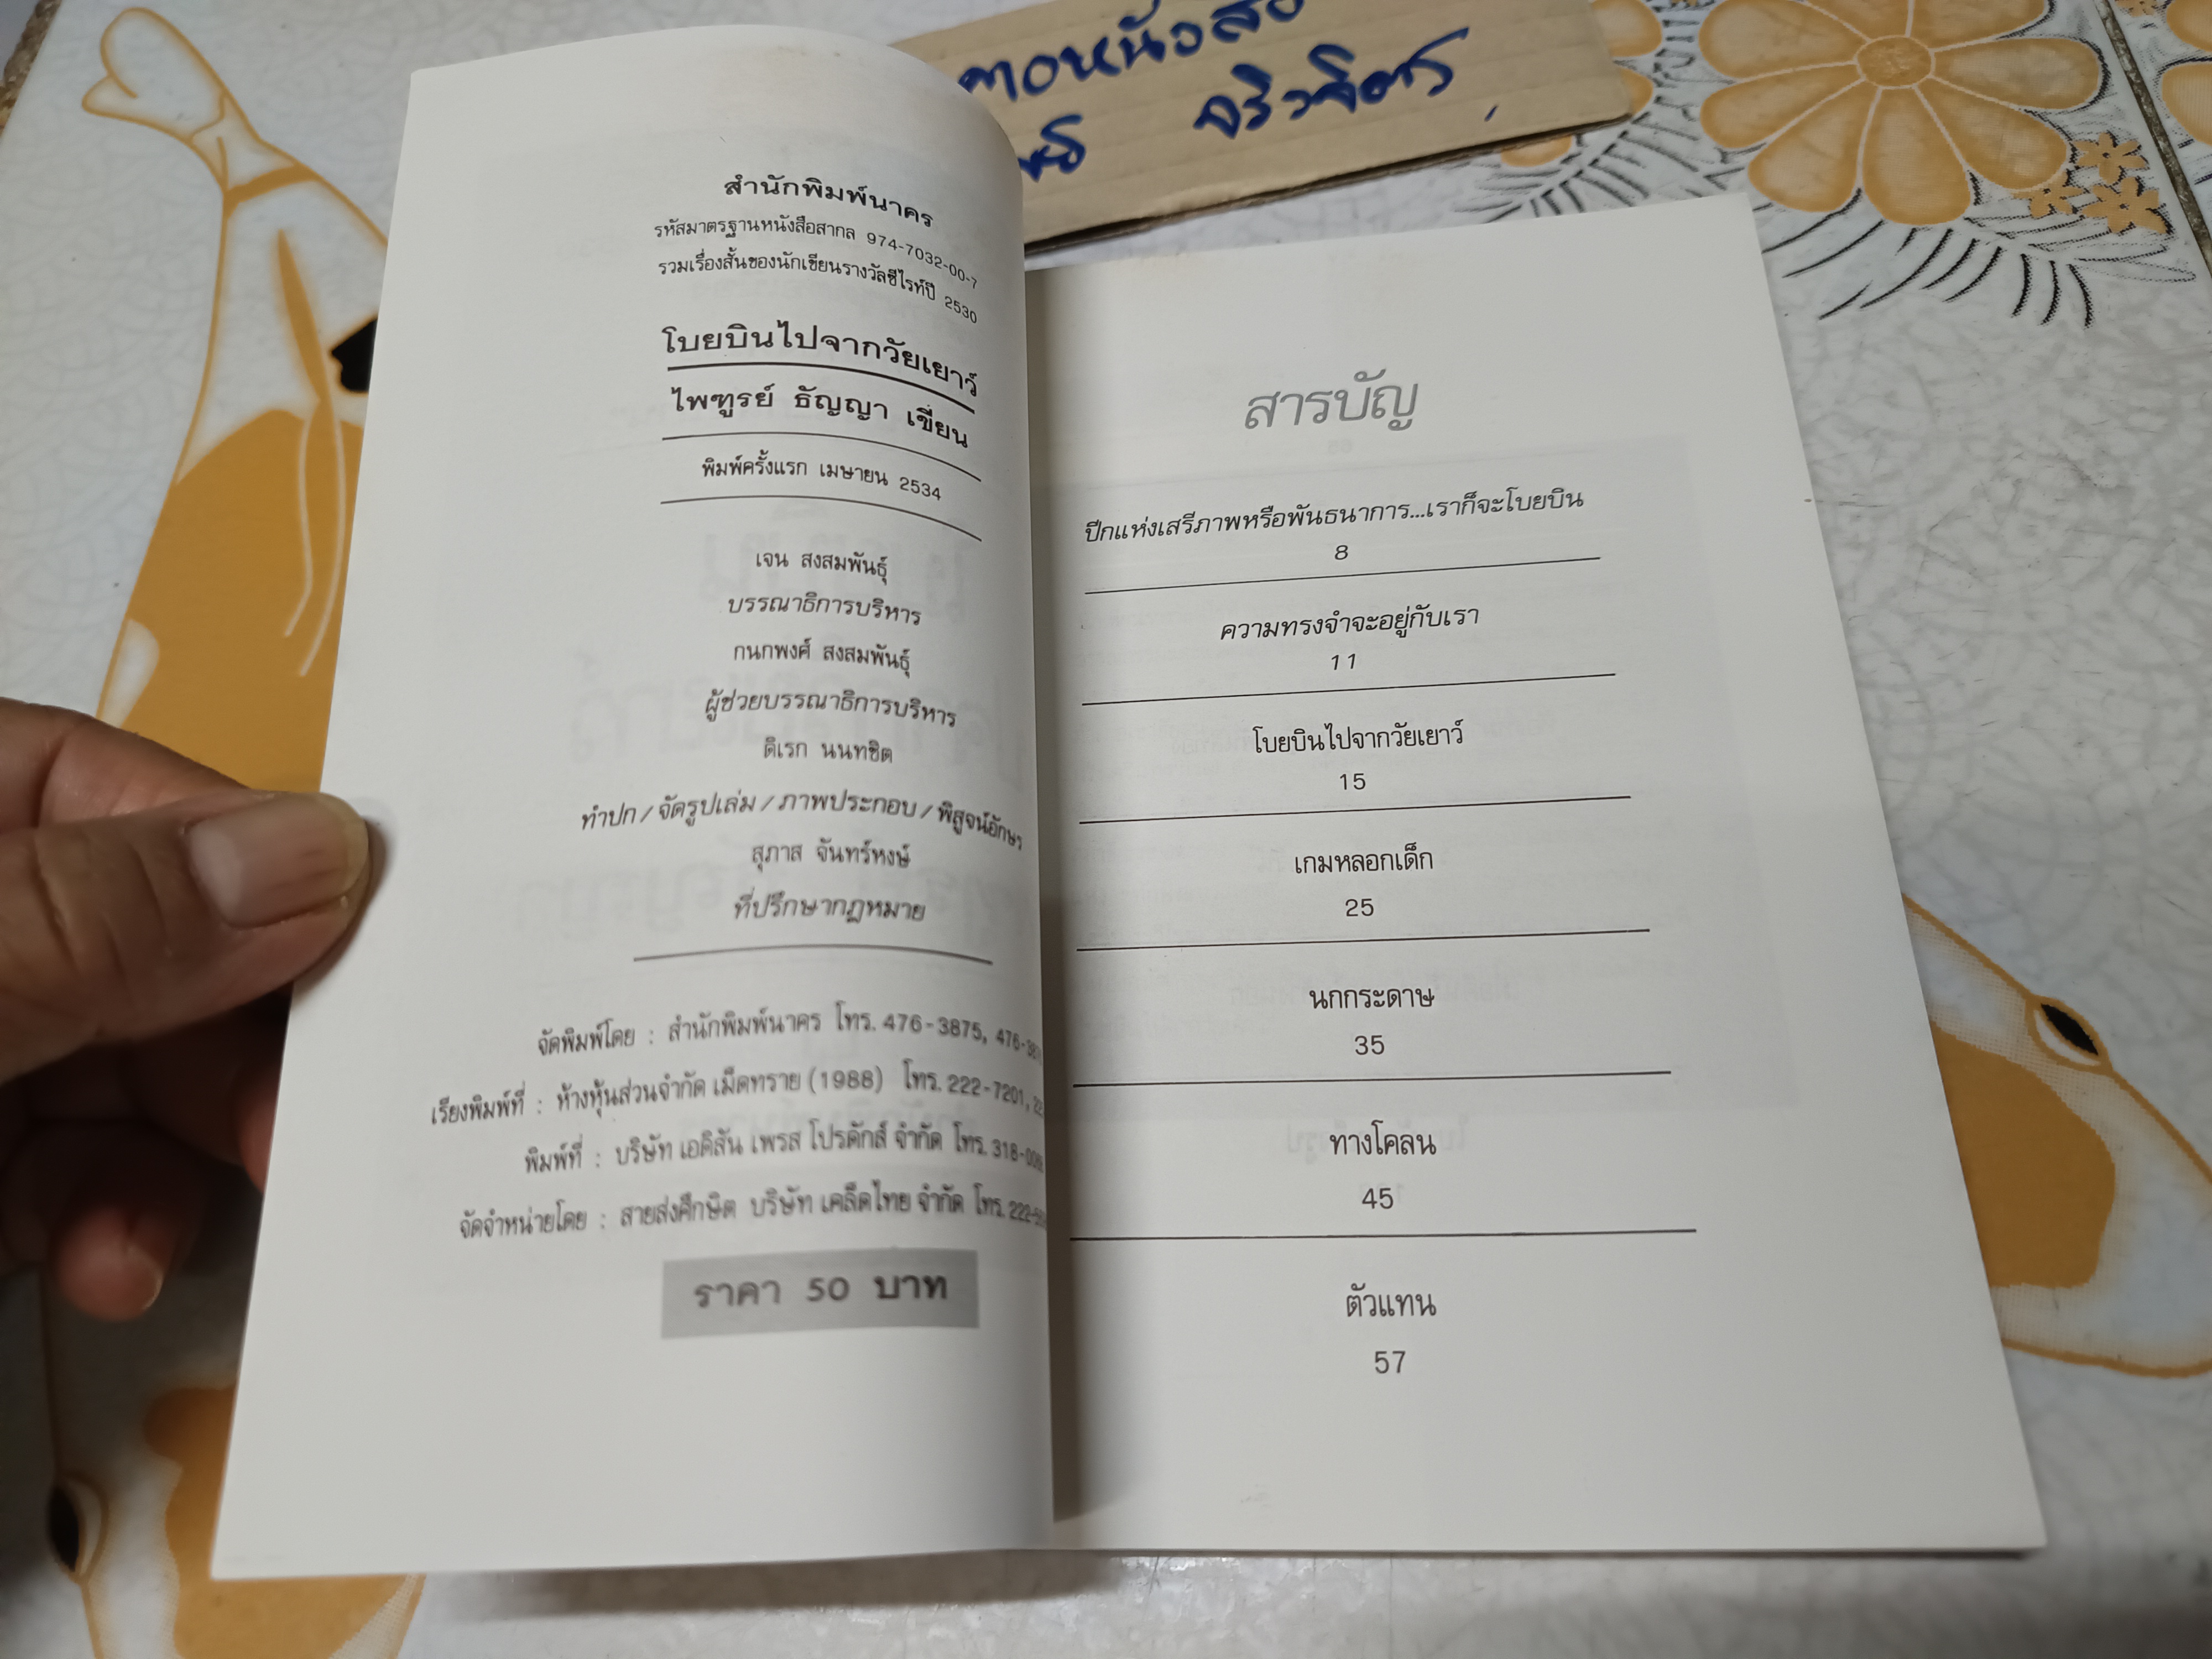 สำนักพิมพ์นาคร
รหัสมาตรฐานหนังสือสากล 974-7032-00-7
รวมเรื่องสั้นของนักเขียนรางวัลซีไรท์ปี 2530
โบยบินไปจากวัยเยาว์
ไพฑูรย์ ธัญญา เขียน
พิมพ์ครั้งแรก เมษายน 2534
เจน สงสมพันธุ์
บรรณาธิการบริหาร
กนกพงศ์ สงสมพันธุ์
ผู้ช่วยบรรณาธิการบริหาร
ดิเรก นนทชิต
ทำปก / จัดรูปเล่ม / ภาพประกอบ / พิสูจน์อักษร
สุภาส จันทร์หงษ์
ที่ปรึกษากฎหมาย
จัดพิมพ์โดย : สำนักพิมพ์นาคร โทร. 476-3875,
เรียงพิมพ์ที่ : ห้างหุ้นส่วนจำกัด เม็ดทราย (1988) โทร. 222-7201,
พิมพ์ที่ : บริษัท เอดิสัน เพรส โปรดักส์ จำกัด โทร.
จัดจำหน่ายโดย : สายส่งศึกษิต บริษัท เคล็ดไทย จำกัด โทร.
ราคา 50 บาท
สารบัญ
ปีกแห่งเสรีภาพหรือพันธนาการ...เราก็จะโบยบิน
8
ความทรงจำจะอยู่กับเรา
11
โบยบินไปจากวัยเยาว์
15
เกมหลอกเด็ก
25
นกกระดาษ
35
ทางโคลน
45
ตัวแทน
57